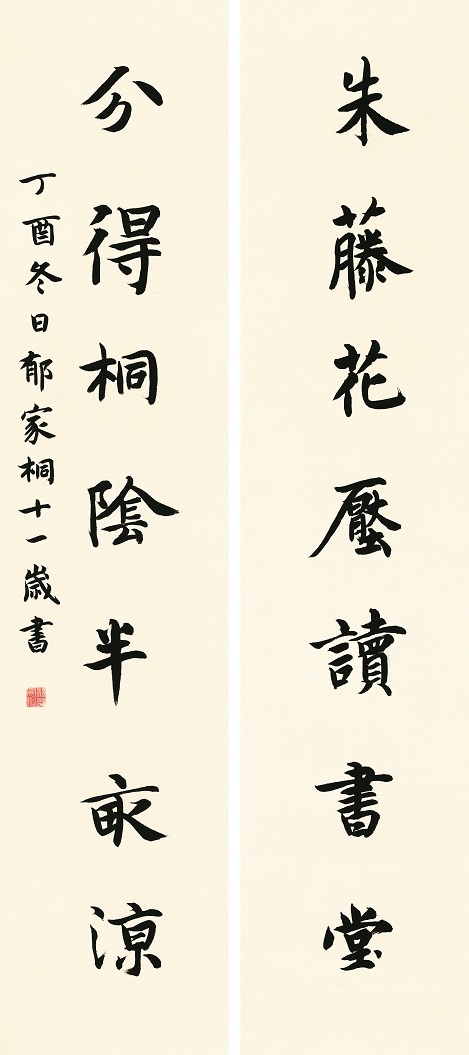 朱藤花壓讀書堂
分得桐陰半畝涼
丁酉冬日郁家桐十一歲書